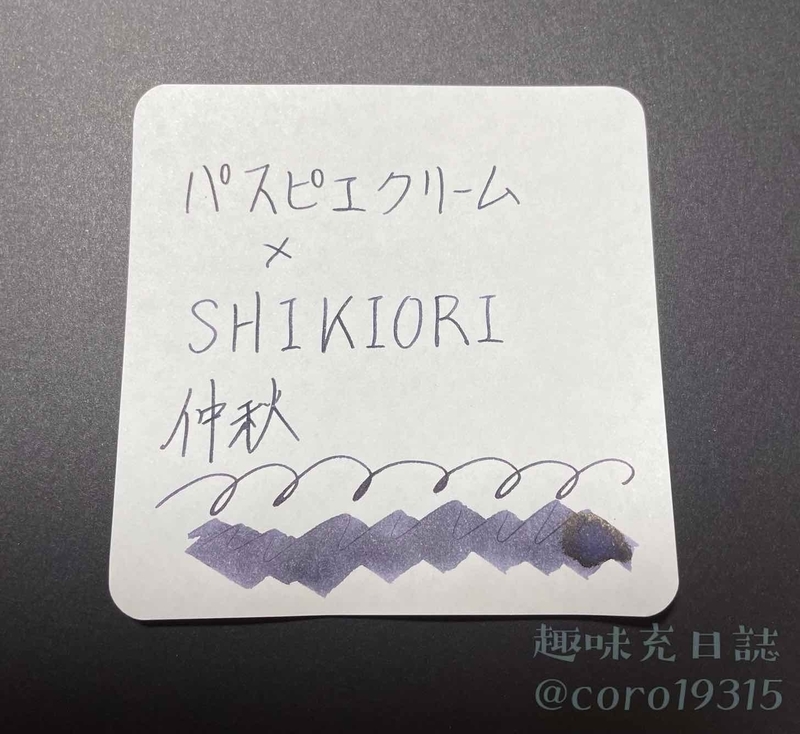 パスピエクリーム
×
SHIKIORI
仲秋
趣味充日誌
@coro19315